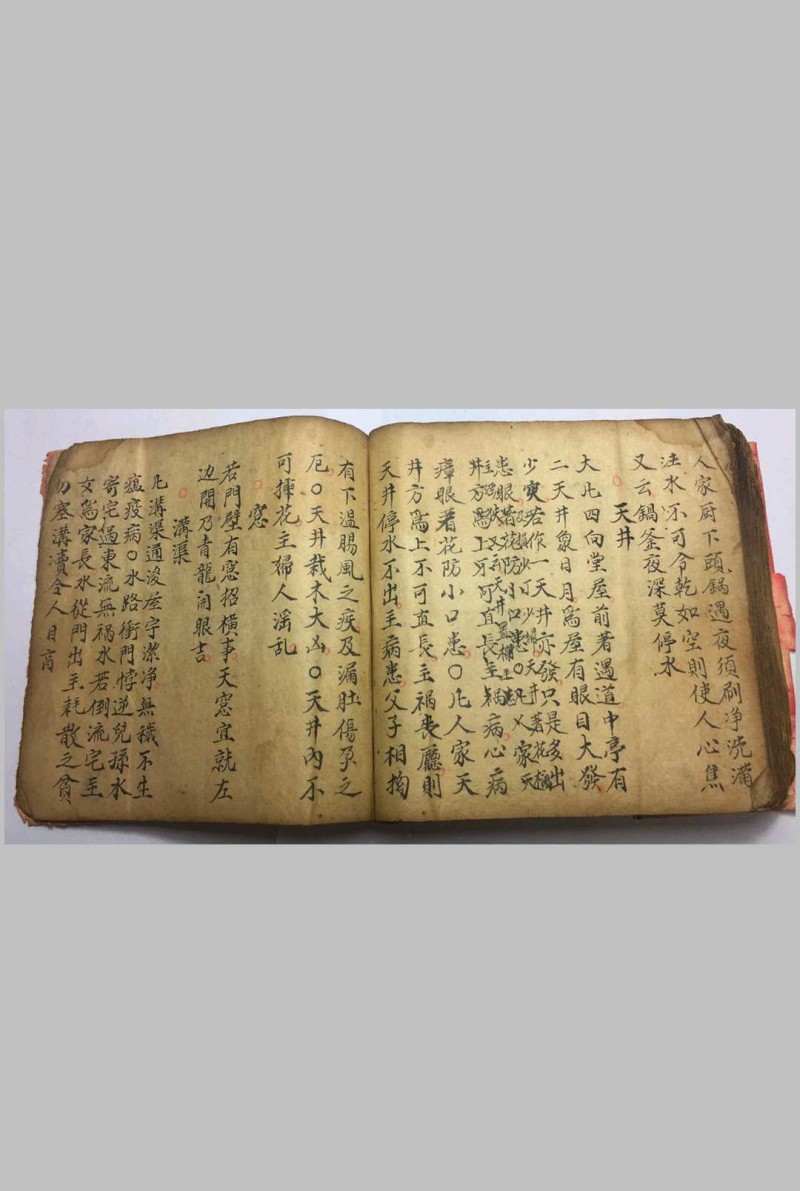 人家厨下頭鍋遇夜須刷净洗滿
注水不可令乾如空則使人心焦
又云鍋釜夜深莫停水
天井
大凡四向堂屋前著過道中亭有
二天井象日月爲屋有眼目大發
少实若作一天井亦發只是多出
患眼
井方爲上不可直長主祸病心病
瘴眼着花防小口患〇凡人家天
井方爲上不可直長主祸喪廳則
天井停水不出主病患父子相拘
有下温腸風之疾及漏肚傷孕之
厄〇天井栽木大凶〇天井內不
可揷花主婦人滛乱
窓
若門壁有窓招横事天窓宜就左
边開乃青龍開眼吉
溝渠
凡溝渠通浚屋宇潔净無穢不生
瘟疫病〇水路衝門悖逆兒孫水
寄宅過東流無祸水若倒流宅主
女爲家長水從門出主耗散之貧
勿塞溝瀆令人目肓